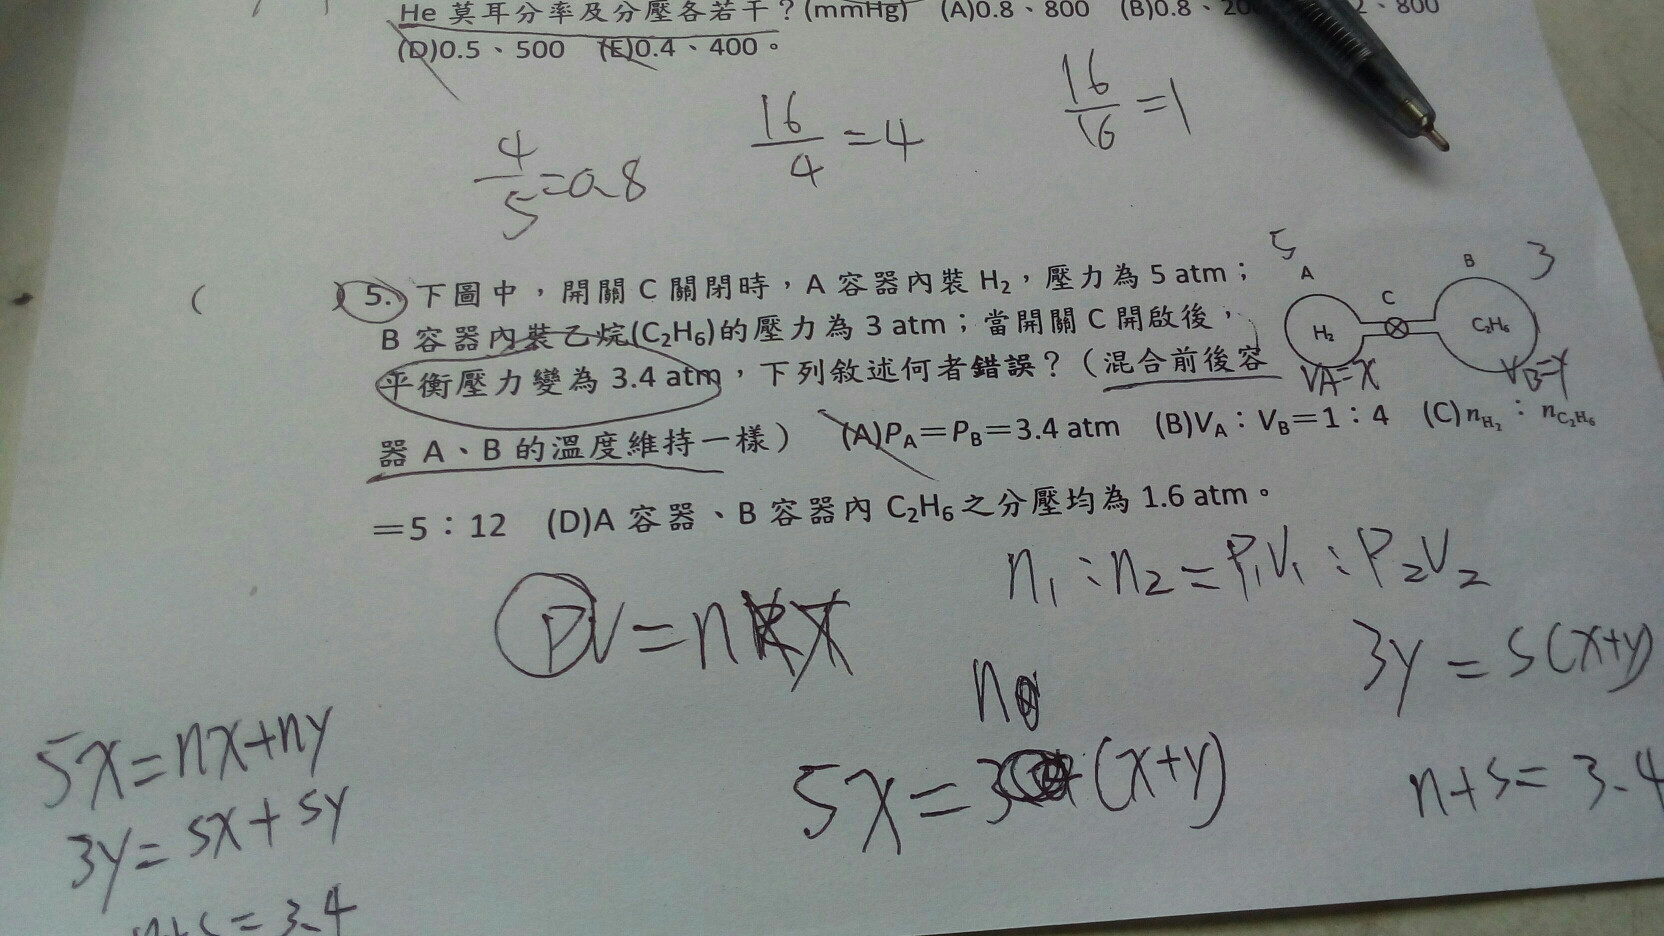 He 莫耳分率及分壓各若干？(mmHg) (A)0.8、800 (B)0.8、20 2、800
(D)0.5、500 (E)0.4、400。
4/5=0.8
16/4=4
16/16=1
( )5. 下圖中，開關 C 關閉時，A 容器內裝 H₂，壓力為 5 atm；
B 容器內裝乙烷(C₂H₆)的壓力為 3 atm；當開關 C 開啟後，
平衡壓力變為 3.4 atm，下列敘述何者錯誤？（混合前後容
器 A、B 的溫度維持一樣） (A)PA＝PB＝3.4 atm (B)VA：VB＝1：4 (C)nH₂：nC₂H₆
＝5：12 (D)A 容器、B 容器內 C₂H₆ 之分壓均為 1.6 atm。
5
A
C
B
3
H₂
C₂H₆
VA=X
VB=Y
n₁:n₂=P₁V₁:P₂V₂
PV=nRT
3y=s(x+y)
n
5x=3 (x+y)
n+s=3.4
5x=nx+ny
3y=sx+sy
n+s=3.4